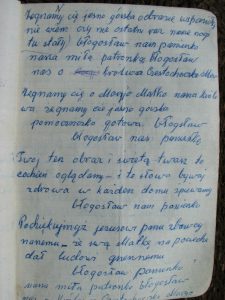 żegnamy cię jasno gorska obrazie wspaniały
nie wiem czy nie ostatni raz nasze nogi
tu stały. błogosław nam panienko
nasza miła patronko błogosław
nas o krolowa Częstochowska Mario
żegnamy cię o Maryjo Matko nasza krolo
wa. żegnamy cię jasno gorsko
pomocnico gotowa. błogosław
błogosław nas. panienko
Twoj ten obraz i swietą twarz to
codzien oglądamy – i te słowa bywaj
zdrowa w każden domu spiewamy
błogosław nam panienko
Podziękujmyż jezusowi panu zbawcy
naszemu – że swą Matkę na pociechę
dał ludowi grzesznemu
błogosław panienko
nasza miła patronko błogosław